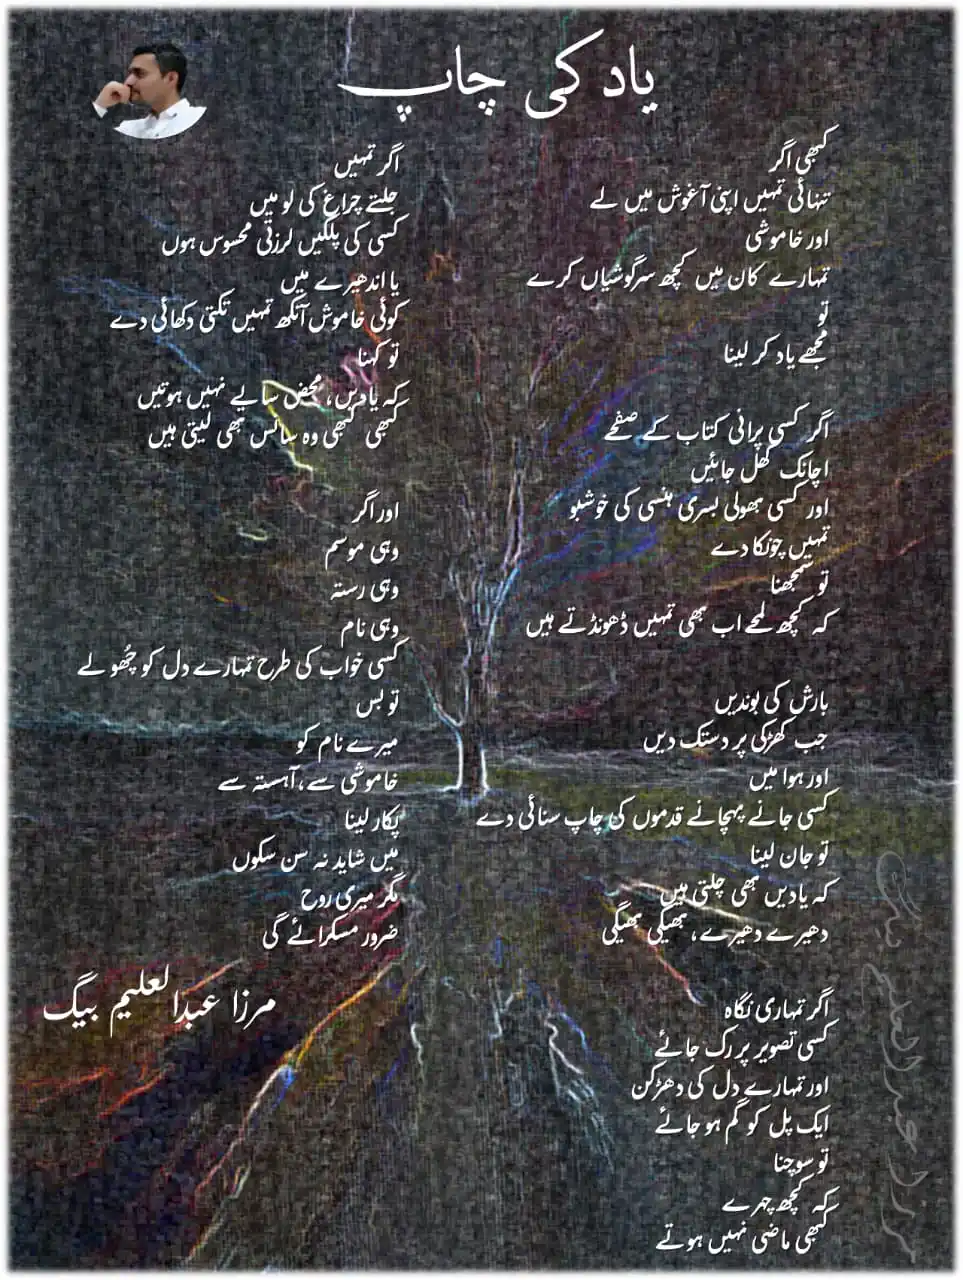 یاد کی چاپ
کبھی اگر
تنہائی تمہیں اپنی آغوش میں لے
اور خاموشی
تمہارے کان میں کچھ سرگوشیاں کرے
تو
مجھے یاد کر لینا
اگر کسی پرانی کتاب کے صفحے
اچانک کھل جائیں
اور کسی بھولی بسری ہنسی کی خوشبو
تمہیں چونکا دے
تو سمجھنا
کہ کچھ لمحے اب بھی تمہیں ڈھونڈتے ہیں
بارش کی بوندیں
جب کھڑکی پر دستک دیں
اور ہوا میں
کسی جانے پہچانے قدموں کی چاپ سنائی دے
تو جان لینا
کہ یادیں بھی چلتی ہیں
دھیرے دھیرے، بھیگی بھیگی
اگر تمہاری نگاہ
کسی تصویر پر رک جائے
اور تمہارے دل کی دھڑکن
ایک پل کو گم ہو جائے
تو سوچنا
کہ کچھ چہرے
کبھی ماضی نہیں ہوتے
اگر تمہیں
جلتے چراغ کی لو میں
کسی کی پلکیں لرزتی محسوس ہوں
یا اندھیرے میں
کوئی خاموش آنکھ تمہیں تکتی دکھائی دے
تو کہنا
کہ یادیں، محض سایے نہیں ہوتیں
کبھی کبھی وہ سانس بھی لیتی ہیں
اور اگر
وہی موسم
وہی رستہ
وہی نام
کسی خواب کی طرح تمہارے دل کو چُھو لے
تو بس
میرے نام کو
خاموشی سے، آہستہ سے
پکار لینا
میں شاید نہ سن سکوں
مگر میری روح
ضرور مسکرائے گی
مرزا عبدالعلیم بیگ
مرزا عبدالعلیم بیگ